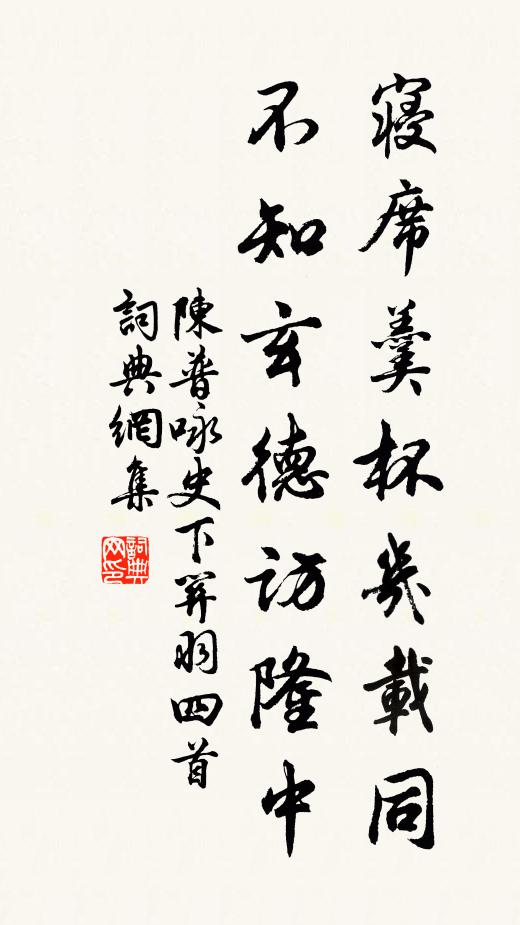 寢席羹杯幾載同
不知玄德訪隆中
陳普咏史下關羽四首
詞典網集
詞典网印